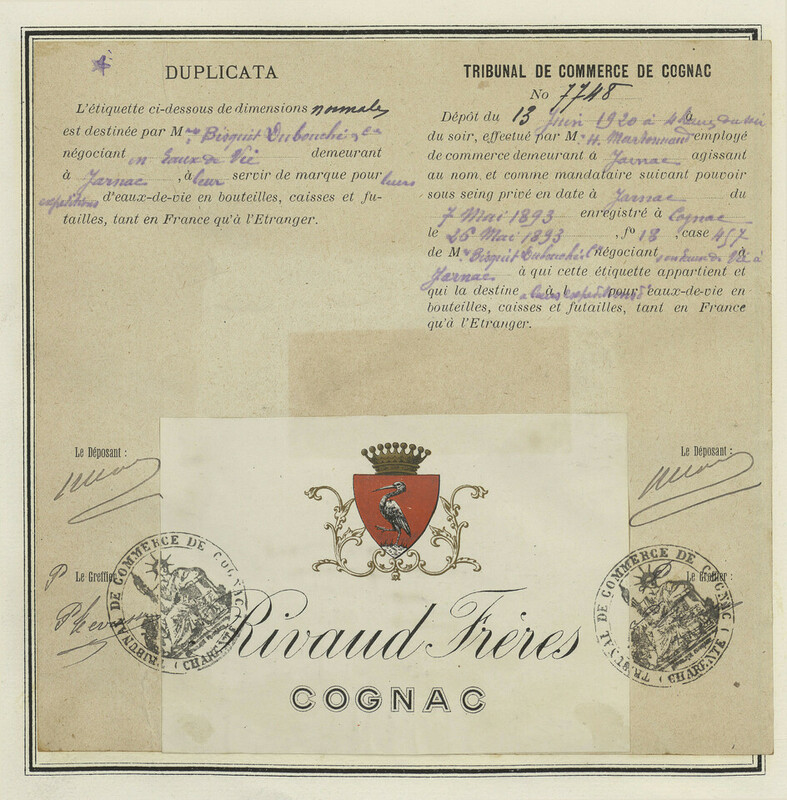 DUPLICATA
L'étiquette ci-dessous de dimensions normales
est destinée par M Bisquit Dubouché & Cie
négociant en Eaux de Vie demeurant
à Jarnac, à leur servir de marque pour leurs
expéditions d'eaux-de-vie en bouteilles, caisses et fu-
tailles, tant en France qu'à l'Etranger.
TRIBUNAL DE COMMERCE DE COGNAC
No 7748
Dépôt du 13 Juin 1920 à 4 heures du soir
du soir, effectué par M. H. employé
de commerce demeurant à Jarnac agissant
au nom et comme mandataire suivant pouvoir
sous seing privé en date à Jarnac du
7 Mai 1893 enregistré à Cognac
le 26 Mai 1893, fo 18, case 457
de M Bisquit Dubouché négociant en Eaux de Vie à
Jarnac à qui cette étiquette appartient et
qui la destine à leurs expéditions d'eaux-de-vie en
bouteilles, caisses et futailles, tant en France
qu'à l'Etranger.
Le Déposant :
Le Déposant :
Le Greffier :
Le Greffier :
TRIBUNAL DE COMMERCE DE COGNAC (CHARENTE)
TRIBUNAL DE COMMERCE DE COGNAC (CHARENTE)
Rivaud Frères
COGNAC